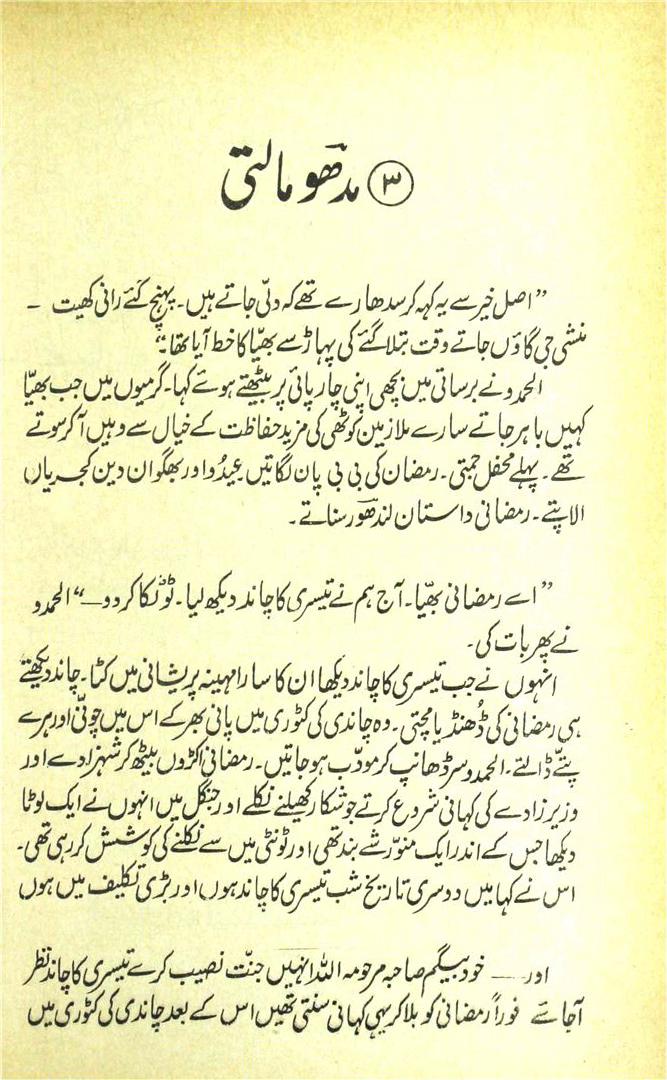 ۳ مدھو مالتی
”اصل خیر سے یہ کہہ کر سدھارے تھے کہ دلّی جاتے ہیں۔ پہنچ گئے رانی کھیت ۔
منشی جی گاؤں جاتے وقت بتلا گئے کی پہاڑ سے بھیّا کا خط آیا تھا۔“
الحمدو نے برساتی میں بچھی اپنی چارپائی پر بیٹھتے ہوئے کہا۔ گرمیوں میں جب بھیّا
کہیں باہر جاتے سارے ملازمین کوٹھی کی مزید حفاظت کے خیال سے وہیں آکر سوتے
تھے۔ پہلے محفل جمتی۔ رمضان کی بی بی پان لگاتیں عیدُو اور بھگوان دین کجریاں
الاپتے۔ رمضانی داستان لندھور سناتے۔
”اے رمضانی بھیّا۔ آج ہم نے تیسری کا چاند دیکھ لیا۔ ٹوٹکا کر دو—“ الحمدو
نے پھر بات کی۔
انہوں نے جب تیسری کا چاند دیکھا ان کا سارا مہینہ پریشانی میں کٹا۔ چاند دیکھتے
ہی رمضانی کی ڈھنڈیا مچتی۔ وہ چاندی کی کٹوری میں پانی بھر کے اس میں چونّی اور ہرے
پتّے ڈالتے۔ الحمدو سر ڈھانپ کر مودّب ہو جاتیں۔ رمضانی اکڑوں بیٹھ کر شہزادے اور
وزیر زادے کی کہانی شروع کرتے جو شکار کھیلنے نکلے اور جنگل میں انہوں نے ایک لوٹا
دیکھا جس کے اندر ایک منوّر شے بند تھی اور ٹونٹی میں سے نکلنے کی کوشش کر رہی تھی۔
اس نے کہا میں دوسری تاریخ شب تیسری کا چاند ہوں اور بڑی تکلیف میں ہوں
اور — خود بیگم صاحبہ مرحومہ اللہ انہیں جنّت نصیب کرے تیسری کا چاند نظر
آجائے فوراً رمضانی کو بلا کر یہی کہانی سنتی تھیں اس کے بعد چاندی کی کٹوری میں